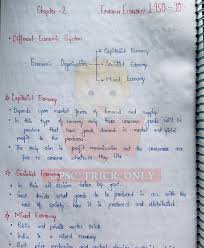 Chapter - 2
Indian Economy 1950-90
• Different Economic System
→ Capitalist Economy
Economic Organisation → Socialist Economy
→ Mixed Economy
1) Capitalist Economy
• Depends upon market forces of demand and supply
• In this type of economy only those consumer goods will be
produce that have good demand in market and yield
profit to the
• The only aim is profit maximisation and the consumers are
free to whatever they like
PSC_TRICK_ONLY
2) Socialist Economy
• In this all decision taken by govt.
• Govt decides what goods to be produced in acc. with the
need of society, how it is produced and distributed
3) Mixed Economy
• Public and private sector exist
• India is a mixed economy
• Both